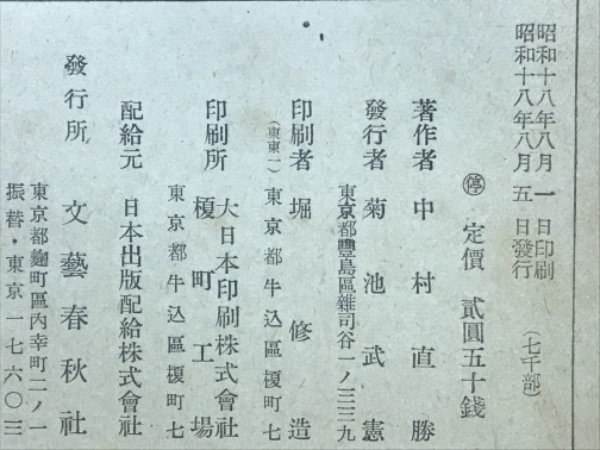 昭和十八年八月一日印刷
昭和十八年八月五日發行
(七千部)
停 定價 貳圓五十錢
著作者 中村直勝
發行者 菊池武憲
東京都豐島區雜司谷一ノ三三九
印刷者 堀修造
(東東一) 東京都牛込區榎町七
印刷所 大日本印刷株式會社
榎町工場
東京都牛込區榎町七
配給元 日本出版配給株式會社
發行所 文藝春秋社
東京都麴町區內幸町二ノ一
振替・東京一七六〇三